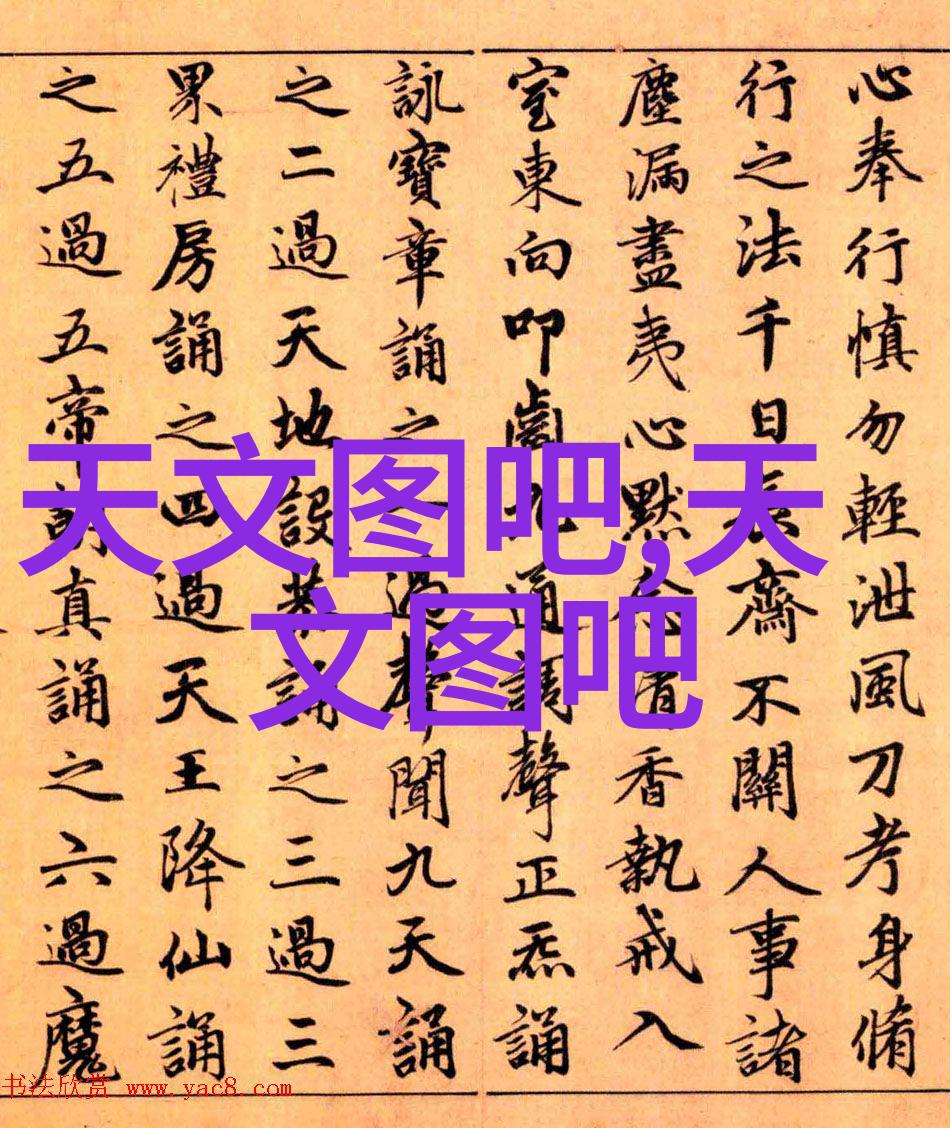 心奉行慎勿輕泄風刀考身脩
行之法千日長齋不關人事諸
塵漏盡夷心默念清香執戒入
室東向叩齒九通調聲正炁誦
詠寶章誦之一過聲聞九天誦
之二過天地設恭誦之三過三
界禮房誦之四過天王降仙誦
之五過五帝朝真誦之六過魔
天文图吧,天
文图吧
书法欣赏 www.yac8.com